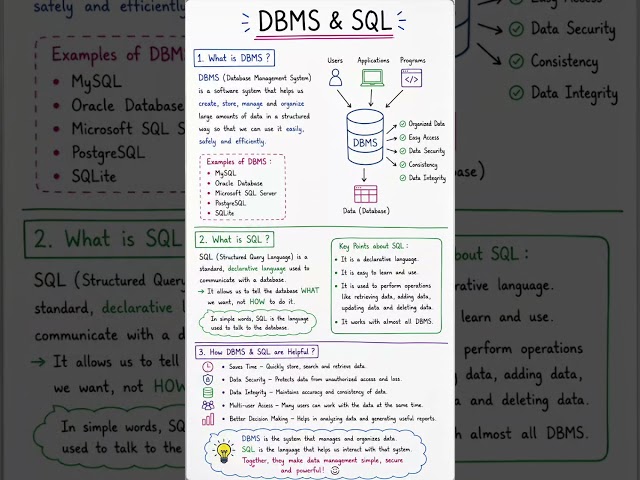 DBMS & SQL
1. What is DBMS ?
DBMS (Database Management System)
is a software system that helps us
create, store, manage and organize
large amounts of data in a structured
way so that we can use it easily,
safely and efficiently.
Examples of DBMS :
• MySQL
• Oracle Database
• Microsoft SQL Server
• PostgreSQL
• SQLite
Users
Applications
Programs
</>
DBMS
Organized Data
Easy Access
Data Security
Consistency
Data Integrity
Data (Database)
2. What is SQL ?
SQL (Structured Query Language) is a
standard, declarative language used to
communicate with a database.
→ It allows us to tell the database WHAT
we want, not HOW to do it.
In simple words, SQL is the language
used to talk to the database.
Key Points about SQL :
• It is a declarative language.
• It is easy to learn and use.
• It is used to perform operations
like retrieving data, adding data,
updating data and deleting data.
• It works with almost all DBMS.
3. How DBMS & SQL are Helpful ?
• Saves Time – Quickly store, search and retrieve data.
• Data Security – Protects data from unauthorized access and loss.
• Data Integrity – Maintains accuracy and consistency of data.
• Multi-user Access – Many users can work with the data at the same time.
• Better Decision Making – Helps in analyzing data and generating useful reports.
DBMS is the system that manages and organizes data.
SQL is the language that helps us interact with that system.
Together, they make data management simple, secure
and powerful! ☺
safely and efficiently
Examples of DBM
• MySQL
• Oracle Database
• Microsoft SQL S
• PostgreSQL
• SQLite
2. What is SQL
SQL (Structured Query
standard, declarative l
communicate with a d
→ It allows us to tell
we want, not HOW
In simple words, SQ
used to talk to the
Easy Access
Data Security
Consistency
Data Integrity
base)
bout SQL :
larative language.
learn and use.
perform operations
g data, adding data,
and deleting data.
almost all DBMS.